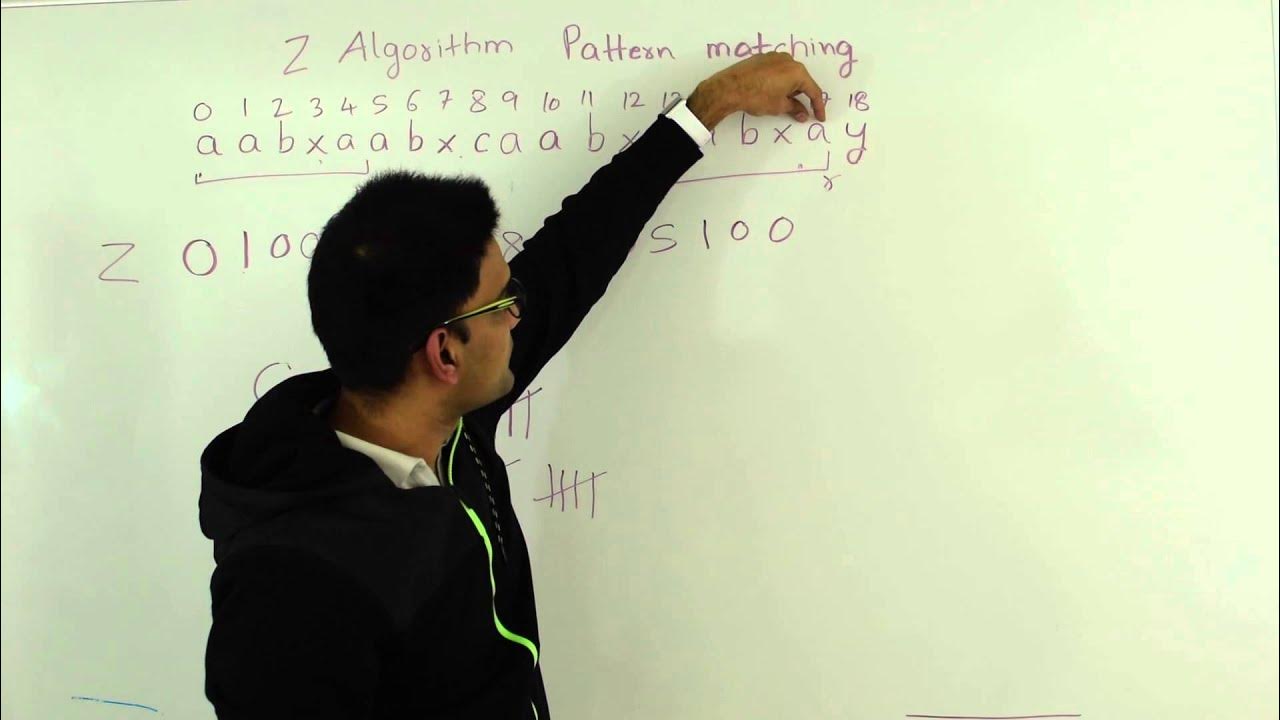 Z Algorithm Pattern matching
0 1 2 3 4 5 6 7 8 9 10 11 12 18
a a b x a a b x c a a b x b x a y
r
Z 0 1 0 0 8 5 1 0 0